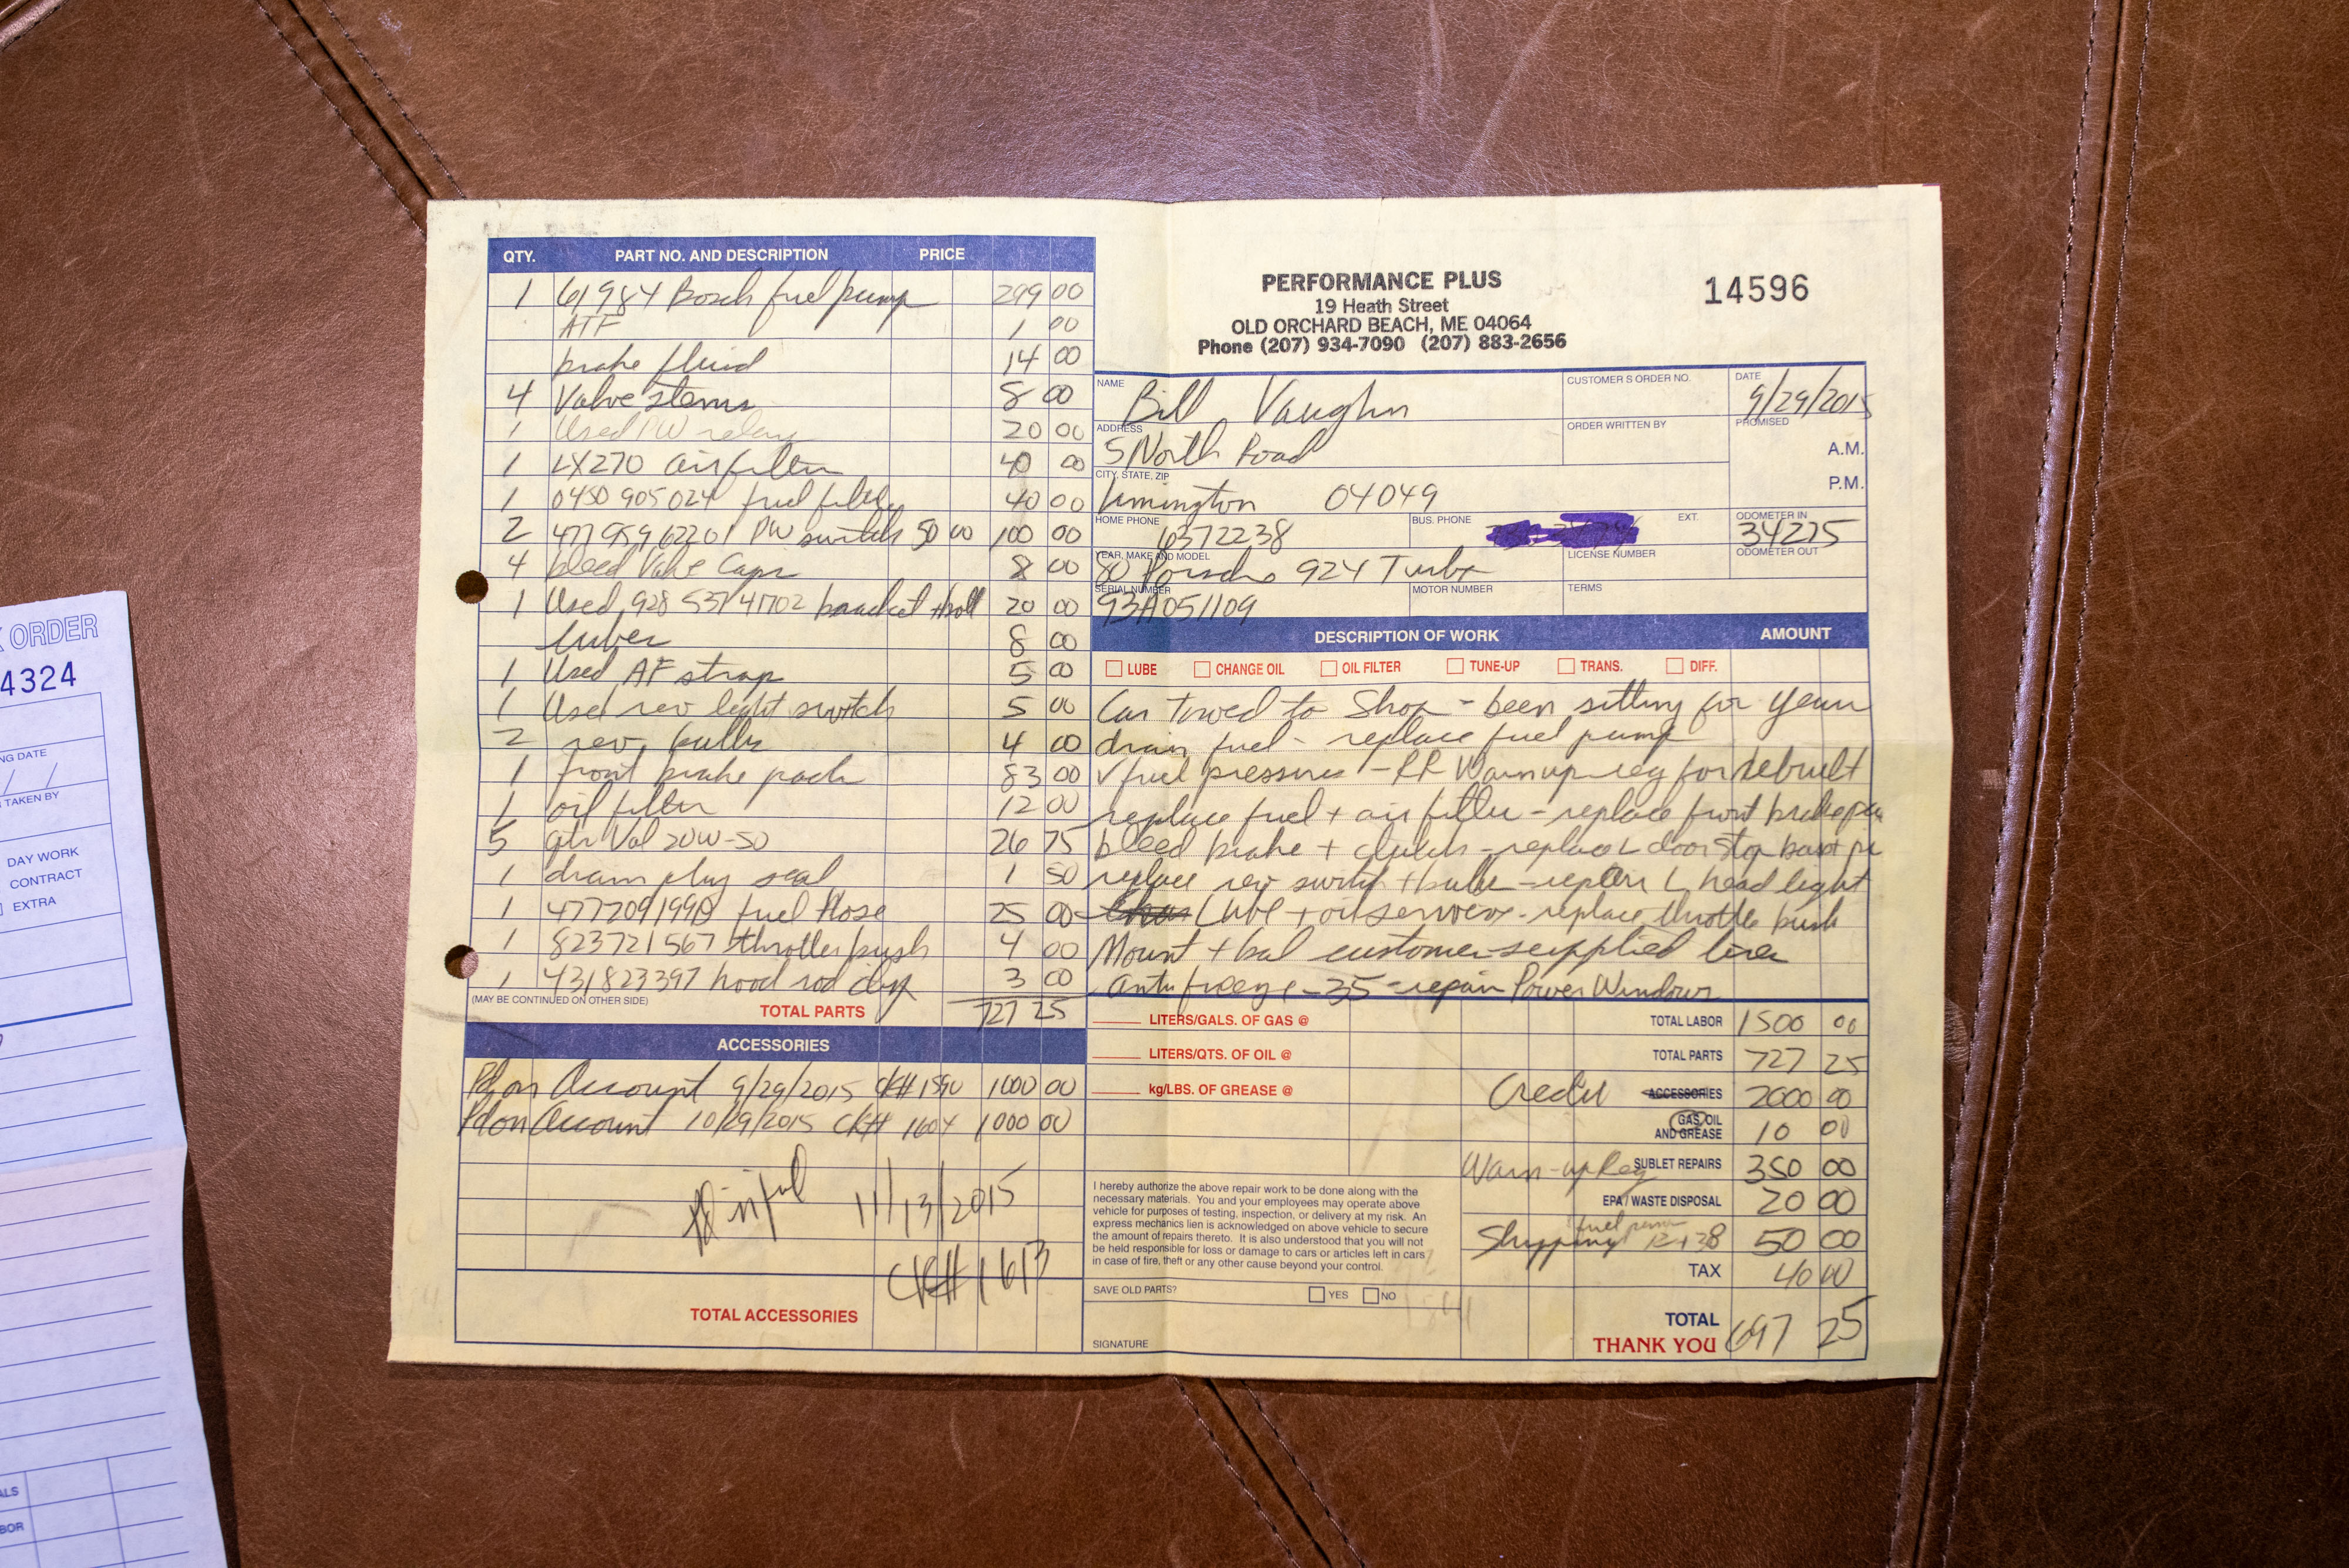 QTY. PART NO. AND DESCRIPTION PRICE
1 61984 Bosch fuel pump 299 00
ATF 1 00
brake fluid 14 00
4 Valve stems 8 00
1 Used PW relay 20 00
1 LX270 air filter 40 00
1 0450 905 024 fuel filter 40 00
2 477 959 622 01 PW switch 50 00 100 00
4 bleed Valve Caps 8 00
1 Used 928 537 417 02 bracket + bolt 20 00
lubes 8 00
1 Used AF strap 5 00
1 Used rev light switch 5 00
2 rev. bulbs 4 00
1 front brake pads 83 00
1 oil filter 12 00
5 qts Val 20W-50 26 75
1 drain plug seal 1 50
1 477209199B fuel Hose 25 00
1 823721567 throttle bush 4 00
1 431823397 hood rod clip 3 00
(MAY BE CONTINUED ON OTHER SIDE) TOTAL PARTS 727 25
ACCESSORIES
Pd on Account 9/29/2015 CK# 1590 1000 00
Pd on Account 10/29/2015 CK# 1604 1000 00
Pd in full 11/13/2015
CK# 1613
TOTAL ACCESSORIES
PERFORMANCE PLUS
19 Heath Street
OLD ORCHARD BEACH, ME 04064
Phone (207) 934-7090 (207) 883-2656
14596
NAME Bill Vaughn CUSTOMER'S ORDER NO. DATE 9/29/2015
ADDRESS 5 North Road ORDER WRITTEN BY PROMISED A.M.
CITY, STATE, ZIP Limington 04049 P.M.
HOME PHONE 6372238 BUS. PHONE EXT. ODOMETER IN 34275
YEAR, MAKE AND MODEL 80 Porsche 924 Turbo LICENSE NUMBER ODOMETER OUT
SERIAL NUMBER 93A051109 MOTOR NUMBER TERMS
DESCRIPTION OF WORK AMOUNT
LUBE CHANGE OIL OIL FILTER TUNE-UP TRANS. DIFF.
Car Towed to Shop - been sitting for years
drain fuel - replace fuel pump
√ fuel pressures - RR Warm up reg for rebuilt
replace fuel + air filter - replace front brake
bleed brake + clutch - replace L door stop
replace rev switch + bulbs - L head light
Lube + oil service - replace throttle bush
Mount + bal customer supplied tires
Antifreeze - 35 - repair Power Windows
LITERS/GALS. OF GAS @ TOTAL LABOR 1500 00
LITERS/QTS. OF OIL @ TOTAL PARTS 727 25
kg/LBS. OF GREASE @ Credit ACCESSORIES 2000 00
GAS, OIL AND GREASE 10 00
Warm-up Reg SUBLET REPAIRS 350 00
EPA / WASTE DISPOSAL 20 00
Shipping fuel pump 12+38 50 00
TAX 40 00
TOTAL 697 25
THANK YOU
I hereby authorize the above repair work to be done along with the
necessary materials. You and your employees may operate above
vehicle for purposes of testing, inspection, or delivery at my risk. An
express mechanics lien is acknowledged on above vehicle to secure
the amount of repairs thereto. It is also understood that you will not
be held responsible for loss or damage to cars or articles left in cars
in case of fire, theft or any other cause beyond your control.
SAVE OLD PARTS? YES NO
SIGNATURE
ORDER
4324
NG DATE
/ /
TAKEN BY
DAY WORK
CONTRACT
EXTRA
ALS
BOR